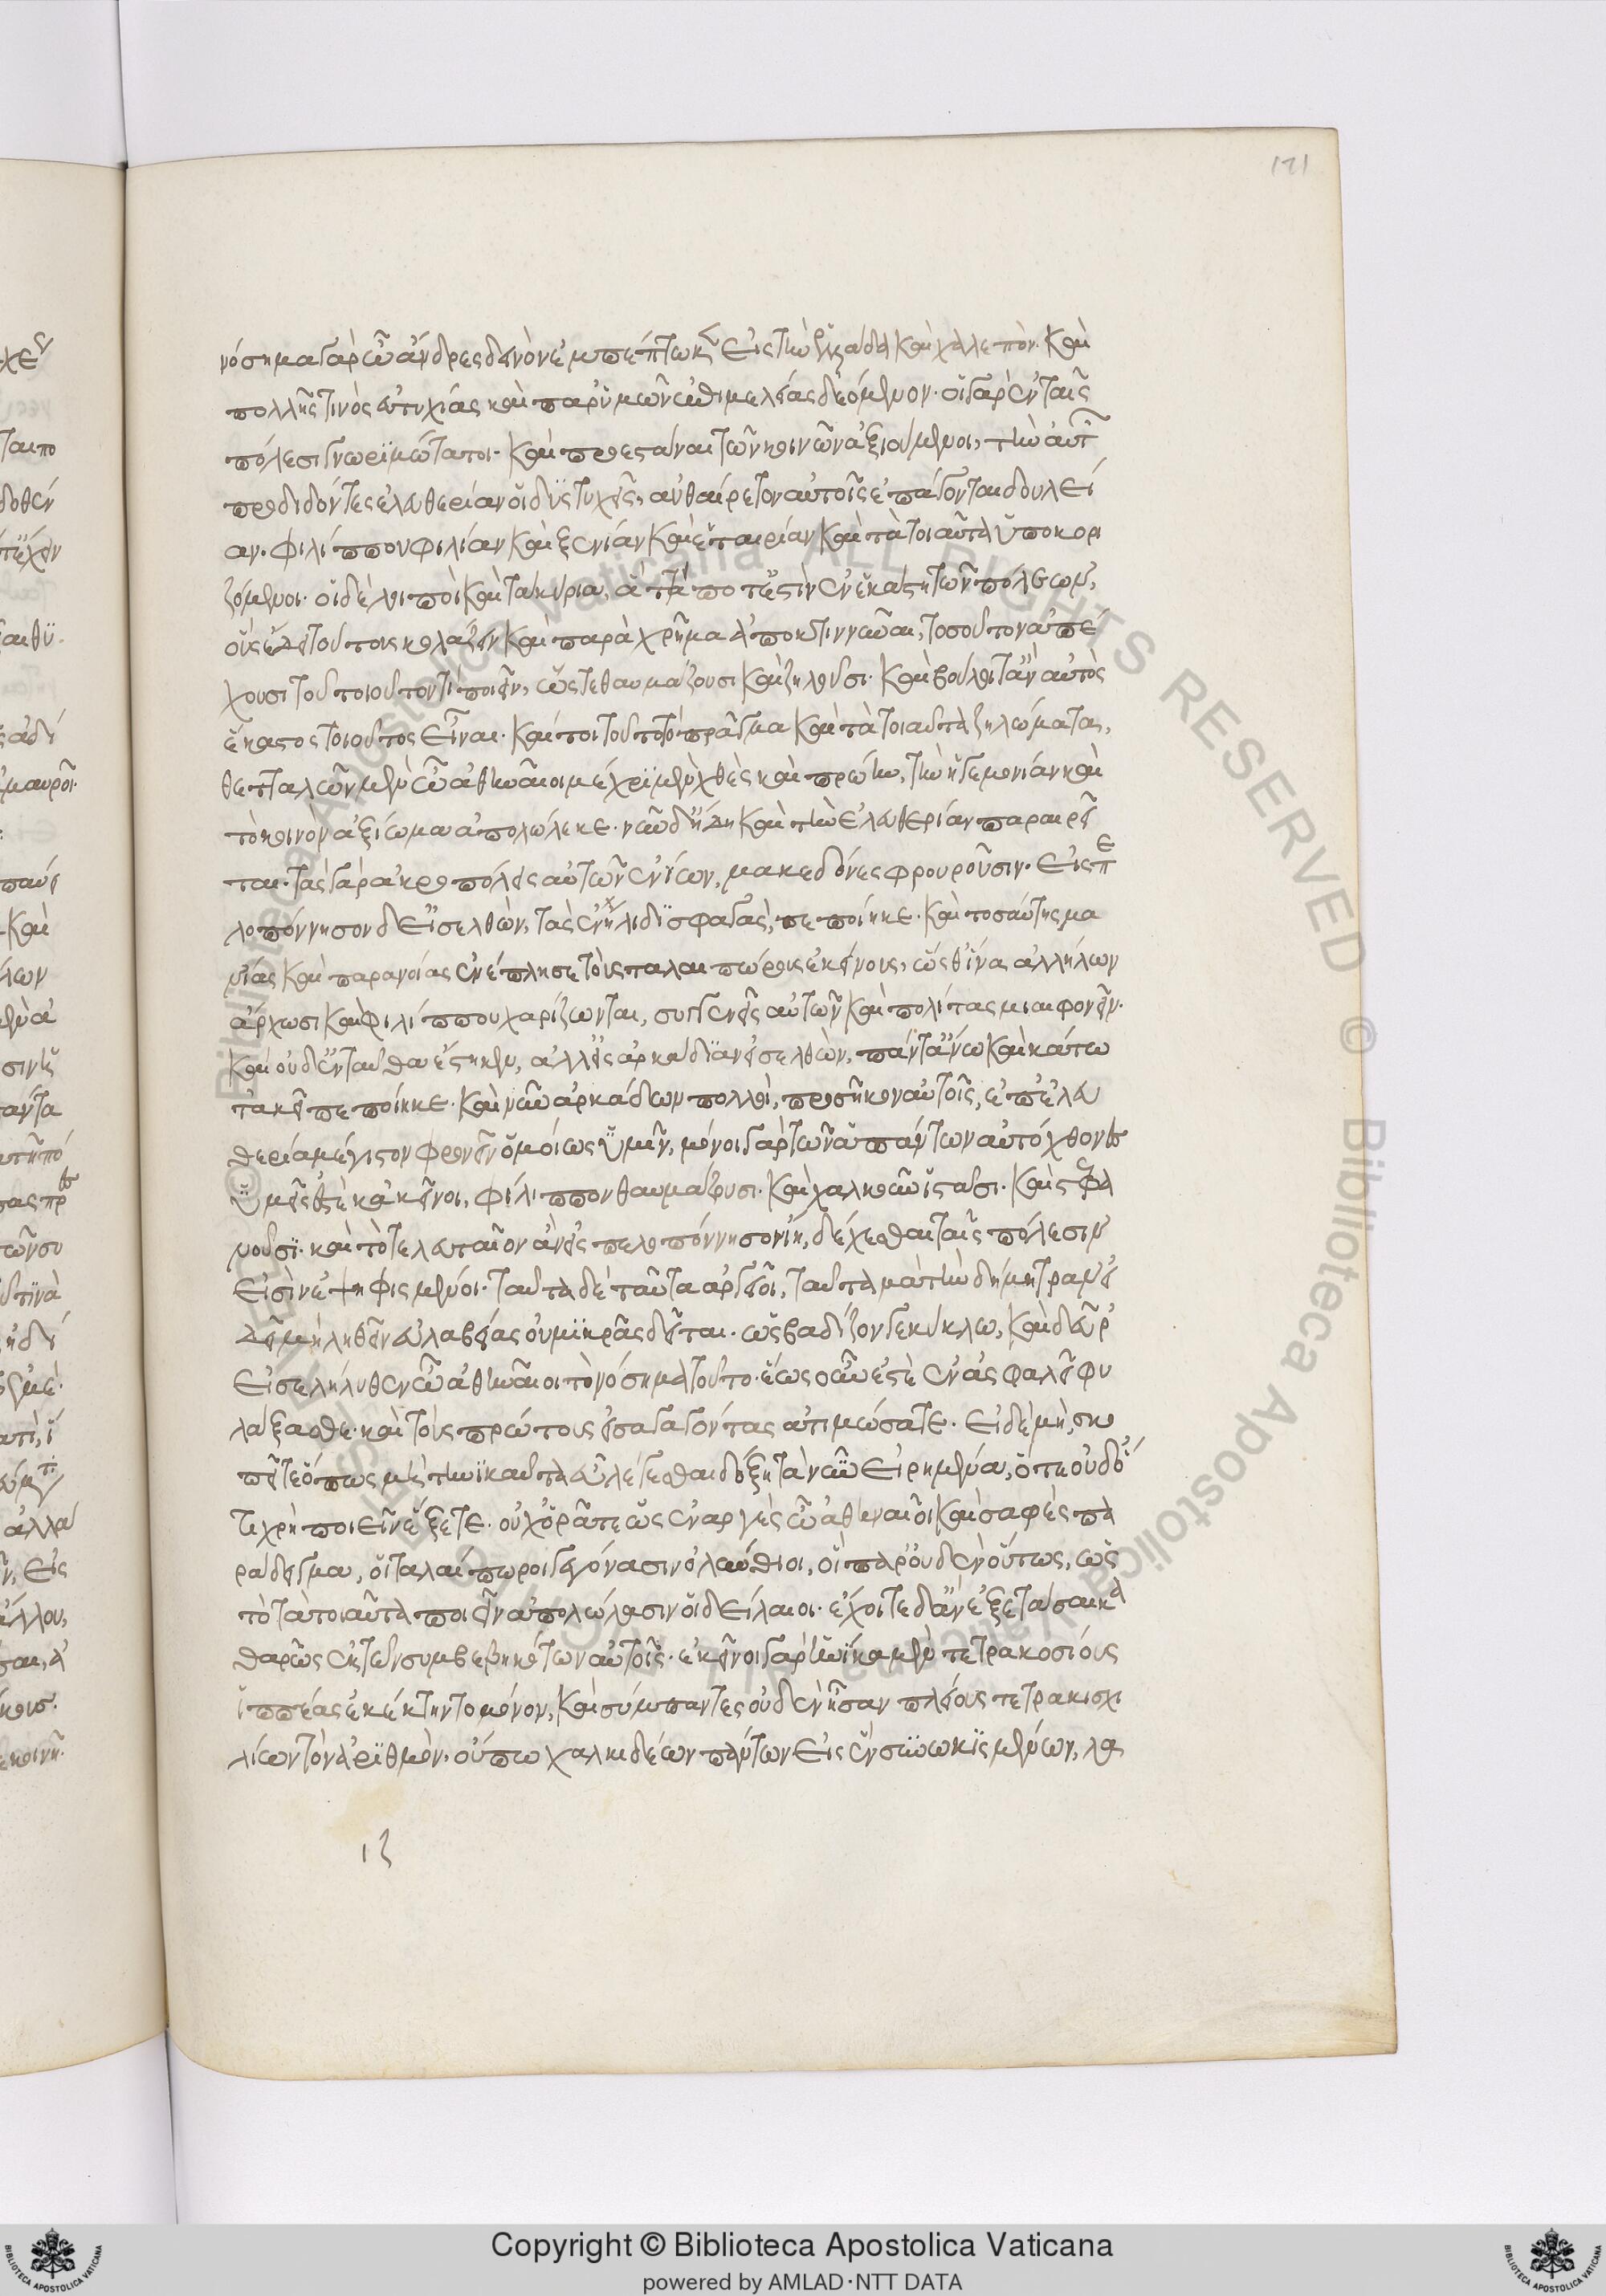 171
νόσημα γὰρ ὦ ἄνδρες δεινὸν ἐμπέπτωκεν εἰς τὴν ἑλλάδα καὶ χαλεπὸν· καὶ
πολλῆς τινὸς εὐτυχίας καὶ παρ' ὑμῶν ἐπιμελείας δεόμενον· οἱ γὰρ ἐν ταῖς
πόλεσι γνωριμώτατοι· καὶ προεστάναι τῶν κοινῶν ἀξιούμενοι, τὴν αὑτῶν
προδιδόντες ἐλευθερίαν οἱ δυστυχεῖς, αὐθαίρετον αὐτοῖς ἐπάγονται δουλεί
αν· φιλίππου φιλίαν καὶ ξενίαν καὶ ἑταιρίαν καὶ τὰ τοιαῦτα ὑποκορι
ζόμενοι· οἱ δὲ λοιποὶ καὶ τὰ κύρια, ἅττα ποτ' ἐστὶν ἐν ἑκάστη τῶν πόλεων,
οὓς ἔδει τούτους κολάζειν καὶ παραχρῆμα ἀποκτιννύναι, τοσοῦτον ἀπέ
χουσι τοῦ τοιοῦτόν τι ποιεῖν, ὥστε θαυμάζουσι καὶ ζηλοῦσι· καὶ βούλοιτ' ἂν αὐτὸς
ἕκαστος τοιοῦτος εἶναι· καίτοι τοῦτο τὸ πρᾶγμα καὶ τὰ τοιαῦτα ζηλώματα,
θετταλῶν μὲν ὦ ἀθηναῖοι μέχρι μὲν χθὲς καὶ πρώην, τὴν ἡγεμονίαν καὶ
τὸ κοινὸν ἀξίωμα ἀπολώλεκε· νῦν δ' ἤδη καὶ τὴν ἐλευθερίαν παραιρεῖ
ται· τὰς γὰρ ἀκροπόλεις αὐτῶν ἐνίων, μακεδόνες φρουροῦσιν· εἰς πε
λοπόννησον δ' εἰσελθὼν, τὰς ἐν ἤλιδι σφαγὰς, πεποίηκε· καὶ τοσαύτης μα
νίας καὶ παρανοίας ἐνέπλησε τοὺς ταλαιπώρους ἐκείνους, ὥσθ' ἵνα ἀλλήλων
ἄρχωσι καὶ φιλίππου χαρίζωνται, συγγενεῖς αὐτῶν καὶ πολίτας μιαιφονεῖν·
καὶ οὐδ' ἐνταῦθα ἕστηκεν, ἀλλ' εἰς ἀρκαδίαν εἰσελθὼν, πάντ' ἄνω καὶ κάτω
τἀκεῖ πεποίηκε· καὶ νῦν ἀρκάδων πολλοὶ, προσῆκον αὐτοῖς, ἐπ' ἐλευ
θερία μέγιστον φρονεῖν ὁμοίως ὑμῖν, μόνοι γὰρ τῶν ἁπάντων αὐτόχθονες
ὑμεῖς ἐστὲ κἀκεῖνοι, φίλιππον θαυμάζουσι· καὶ χαλκοῦν ἱστᾶσι· καὶ στεφα
νοῦσι· καὶ τὸ τελευταῖον ἂν εἰς πελοπόννησον ἴῃ, δέχεσθαι ταῖς πόλεσιν
εἰσὶν ἐψηφισμένοι· ταῦτα δὲ ταῦτα ἀργεῖοι, ταῦτα μὰ τὴν δήμητρα εἰ
δεῖ μὴ ληρεῖν εὐλαβείας οὐ μικρᾶς δεῖται· ὡς βαδίζον γε κύκλω, καὶ δεῦρ'
εἰσελήλυθεν ὦ ἀθηναῖοι τὸ νόσημα τοῦτο· ἕως οὖν ἔστ' ἐν ἀσφαλεῖ φυ
λάξασθε· καὶ τοὺς πρώτους εἰσαγαγόντας ἀτιμώσατε· εἰ δὲ μὴ, σκο
πεῖτε ὅπως μὴ τηνικαῦτα εὖ λέγεσθαι δόξῃ τὰ νῦν εἰρημένα, ὅτ' οὐδ' ὅ
τι χρὴ ποιεῖν ἕξετε· οὐχ ὁρᾶτε ὡς ἐναργὲς ὦ ἀθηναῖοι καὶ σαφὲς πα
ράδειγμα, οἱ ταλαίπωροι γεγόνασιν ὀλύνθιοι, οἳ παρ' οὐδὲν οὕτως, ὡς
τὸ τὰ τοιαῦτα ποιεῖν ἀπολώλασιν οἱ δείλαιοι· ἔχοιτε δ' ἂν ἐξετάσαι κα
θαρῶς ἐκ τῶν συμβεβηκότων αὐτοῖς· ἐκεῖνοι γὰρ ἡνίκα μὲν τετρακοσίους
ἱππέας ἐκέκτηντο μόνον, καὶ σύμπαντες οὐδὲν ἦσαν πλείους πετρακισχι
λίων τὸν ἀριθμὸν, οὔπω χαλκιδέων πάντων εἰς ἓν συνωκισμένων, λα
ιζ
© Biblioteca Apostolica Vaticana ALL RIGHTS RESERVED © Biblioteca Apostolica Vaticana
Copyright © Biblioteca Apostolica Vaticana
powered by AMLAD·NTT DATA